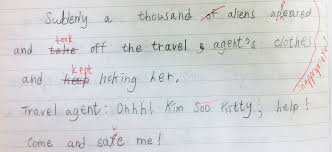 Subdenly a thousand of aliens apeared
p
took
and take off the travel agent's clothes
kept
and keep licking her,
Travel agent: Ohhh! Kim Soo Kitty! help!
v
Come and safe me!